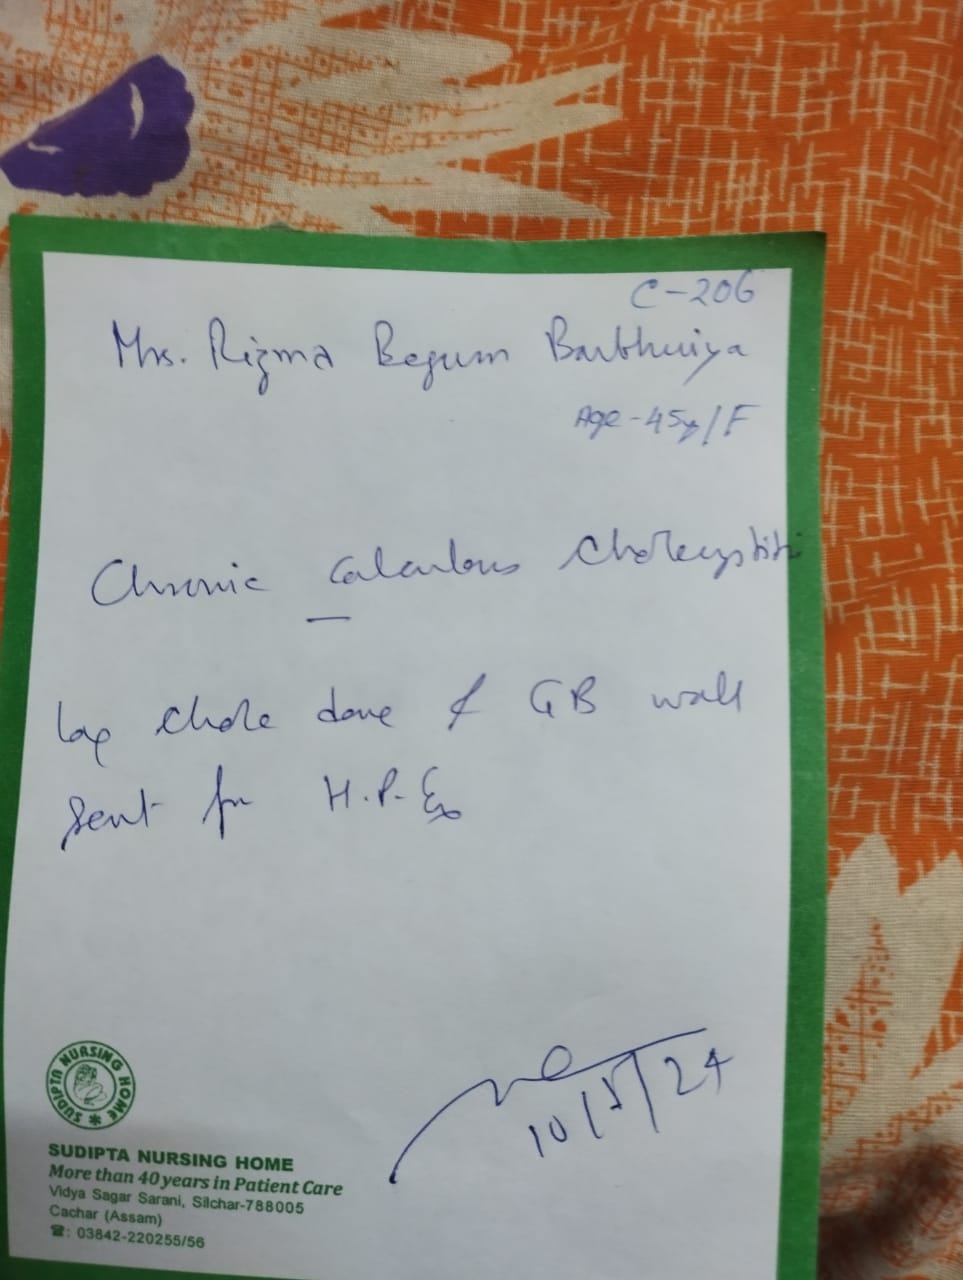 C-206
Mrs. Rizma Begum Barbhuiya
Age-45y/F
Chronic Calculous Cholecystitis
Lap Chole done & GB wall
sent for H.P.Ex
10/ /24
SUDIPTA NURSING HOME
SUDIPTA NURSING HOME
More than 40 years in Patient Care
Vidya Sagar Sarani, Silchar-788005
Cachar (Assam)
☎: 03842-220255/56